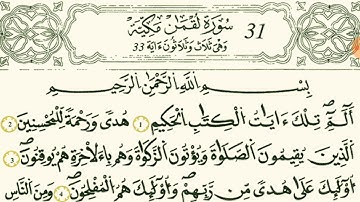 سُورَةُ لُقْمَٰن مَكِّيَّة 31
وَهْيَ ثَلَاث وَثَلَاثُونَ ءَايَة 33
بِسْمِ اللَّهِ الرَّحْمَٰنِ الرَّحِيمِ
أَلَٓمِّٓ تِلْكَ ءَايَٰتُ الْكِتَٰبِ الْحَكِيمِ 1 هُدىً وَرَحْمَةً لِّلْمُحْسِنِينَ 2
الَّذِينَ يُقِيمُونَ الصَّلَوٰةَ وَيُؤْتُونَ الزَّكَوٰةَ وَهُم بِالَاخِرَةِ هُمْ يُوقِنُونَ 3
أُوْلَٰٓئِكَ عَلَىٰ هُدىً مِّن رَّبِّهِمْ وَأُوْلَٰٓئِكَ هُمُ الْمُفْلِحُونَ 4 وَمِنَ النَّاسِ